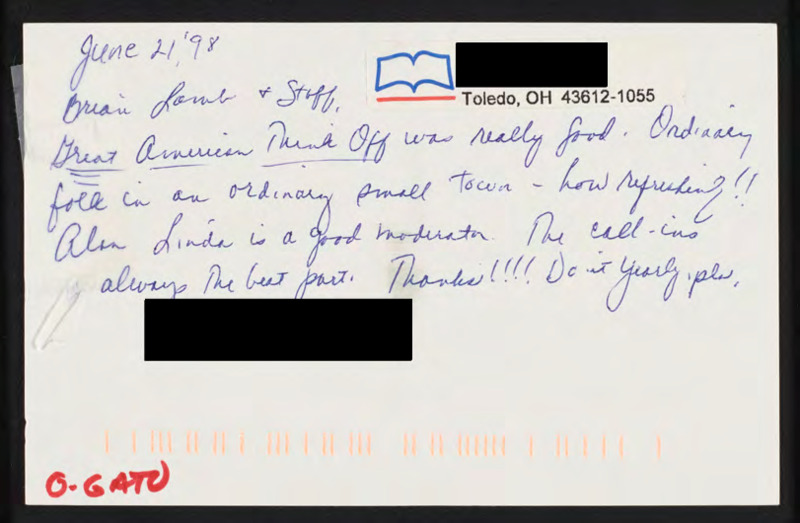 June 21, '98
Toledo, OH 43612-1055
Brian Lamb + Staff,
Great American Think Off was really good. Ordinary
folk in an ordinary small town - how refreshing!!
Alan Linda is a good moderator. The call-ins
always the best part. Thanks!!!! Do it yearly, pls.
O-GATO